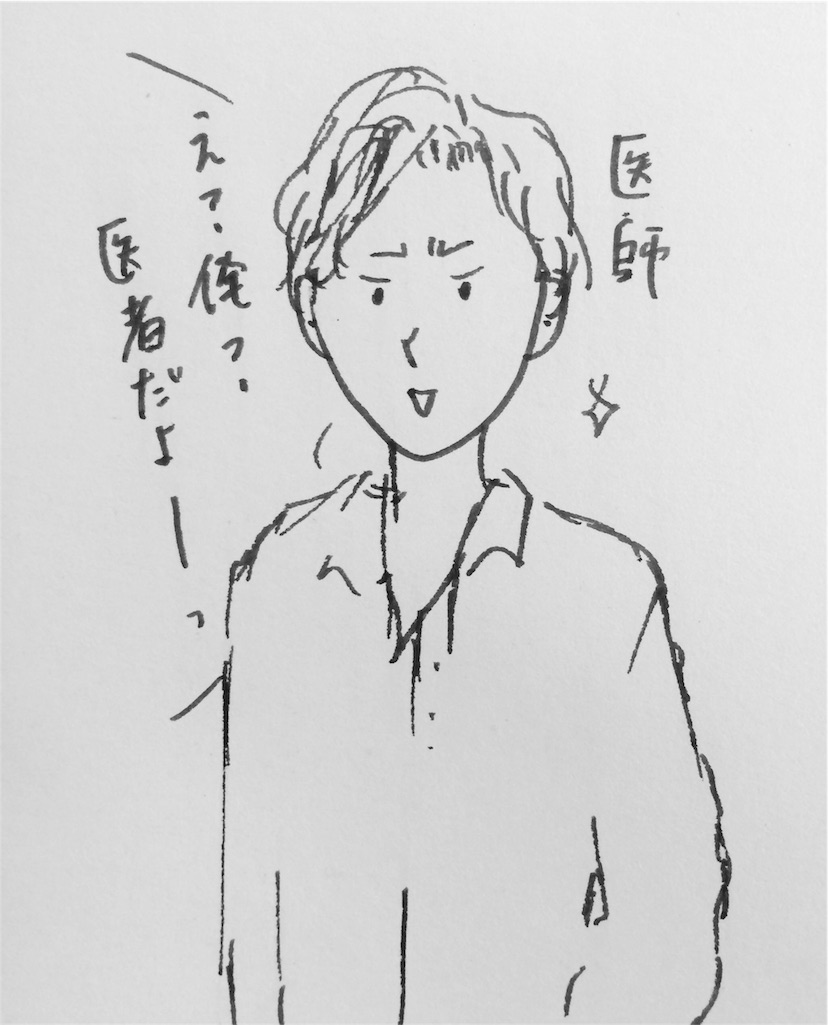 医師
えっ、俺？
医者だよーっ